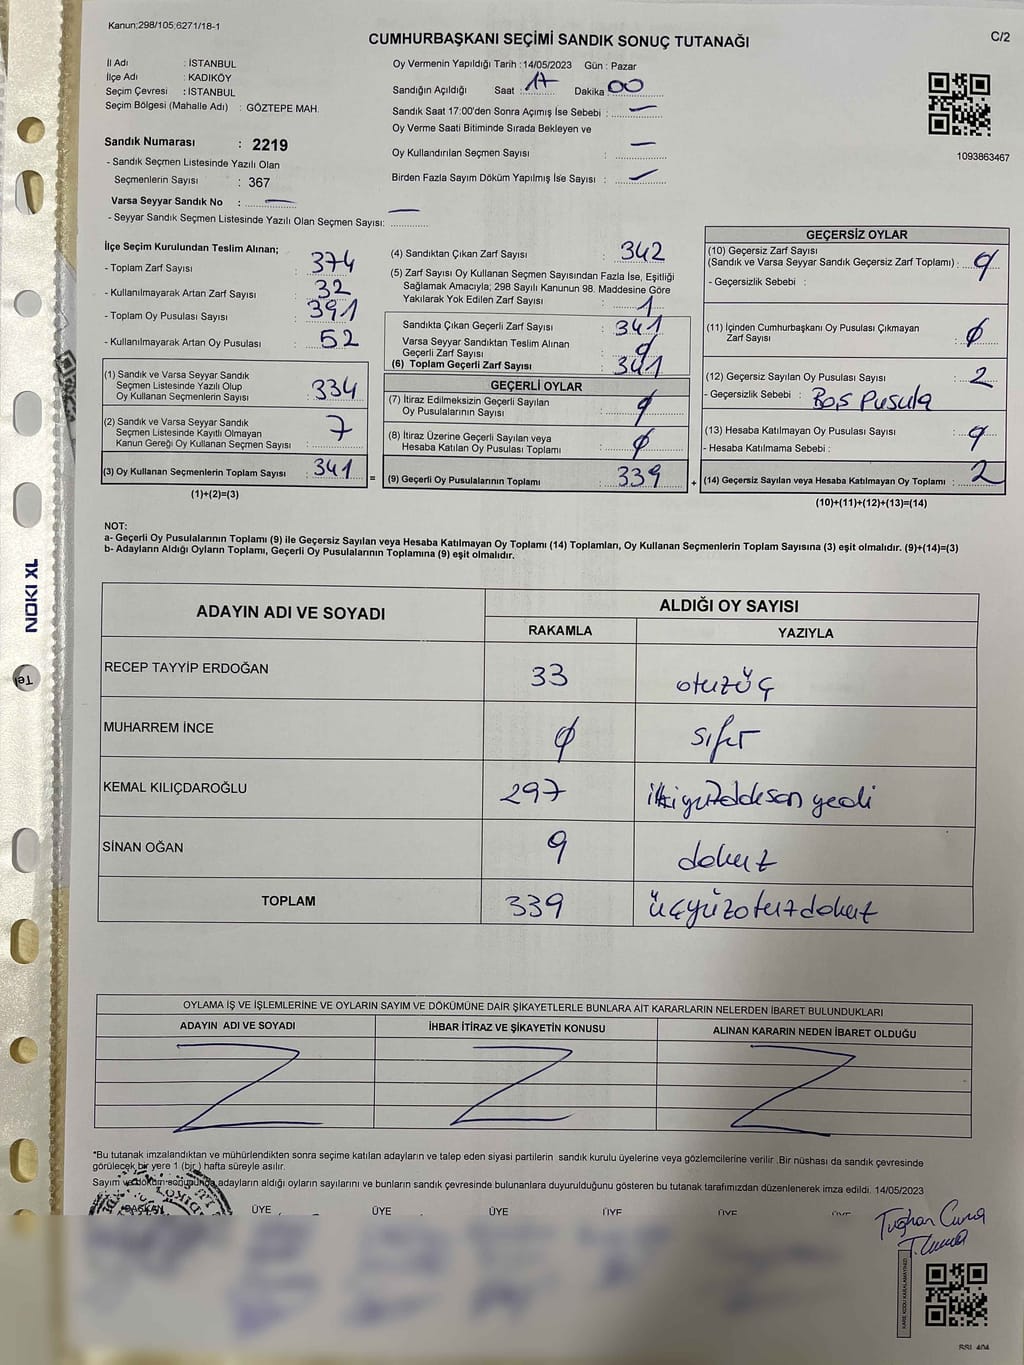 Kanun;298/105;6271/18-1
C/2
CUMHURBAŞKANI SEÇİMİ SANDIK SONUÇ TUTANAĞI
İl Adı : İSTANBUL
İlçe Adı : KADIKÖY
Seçim Çevresi : İSTANBUL
Seçim Bölgesi (Mahalle Adı) : GÖZTEPE MAH.
Sandık Numarası : 2219
- Sandık Seçmen Listesinde Yazılı Olan
Seçmenlerin Sayısı : 367
Varsa Seyyar Sandık No : —
- Seyyar Sandık Seçmen Listesinde Yazılı Olan Seçmen Sayısı: —
Oy Vermenin Yapıldığı Tarih : 14/05/2023 Gün : Pazar
Sandığın Açıldığı Saat : 17 Dakika : 00
Sandık Saat 17:00'den Sonra Açımış İse Sebebi : —
Oy Verme Saati Bitiminde Sırada Bekleyen ve
Oy Kullandırılan Seçmen Sayısı : —
Birden Fazla Sayım Döküm Yapılmış İse Sayısı : —
1093863467
İlçe Seçim Kurulundan Teslim Alınan;
- Toplam Zarf Sayısı : 374
- Kullanılmayarak Artan Zarf Sayısı : 32
- Toplam Oy Pusulası Sayısı : 391
- Kullanılmayarak Artan Oy Pusulası : 52
(1) Sandık ve Varsa Seyyar Sandık
Seçmen Listesinde Yazılı Olup
Oy Kullanan Seçmenlerin Sayısı : 334
(2) Sandık ve Varsa Seyyar Sandık
Seçmen Listesinde Kayıtlı Olmayan
Kanun Gereği Oy Kullanan Seçmen Sayısı : 7
(3) Oy Kullanan Seçmenlerin Toplam Sayısı : 341
(1)+(2)=(3)
=
(4) Sandıktan Çıkan Zarf Sayısı : 342
(5) Zarf Sayısı Oy Kullanan Seçmen Sayısından Fazla İse, Eşitliği
Sağlamak Amacıyla; 298 Sayılı Kanunun 98. Maddesine Göre
Yakılarak Yok Edilen Zarf Sayısı : 1
Sandıkta Çıkan Geçerli Zarf Sayısı : 341
Varsa Seyyar Sandıktan Teslim Alınan
Geçerli Zarf Sayısı : 0
(6) Toplam Geçerli Zarf Sayısı : 341
GEÇERLİ OYLAR
(7) İtiraz Edilmeksizin Geçerli Sayılan
Oy Pusulalarının Sayısı : 0
(8) İtiraz Üzerine Geçerli Sayılan veya
Hesaba Katılan Oy Pusulası Toplamı : 0
(9) Geçerli Oy Pusulalarının Toplamı : 339
+
GEÇERSİZ OYLAR
(10) Geçersiz Zarf Sayısı
(Sandık ve Varsa Seyyar Sandık Geçersiz Zarf Toplamı) : 0
- Geçersizlik Sebebi :
(11) İçinden Cumhurbaşkanı Oy Pusulası Çıkmayan
Zarf Sayısı : 0
(12) Geçersiz Sayılan Oy Pusulası Sayısı : 2
- Geçersizlik Sebebi : Boş Pusula
(13) Hesaba Katılmayan Oy Pusulası Sayısı : 0
- Hesaba Katılmama Sebebi :
(14) Geçersiz Sayılan veya Hesaba Katılmayan Oy Toplamı : 2
(10)+(11)+(12)+(13)=(14)
NOT:
a- Geçerli Oy Pusulalarının Toplamı (9) ile Geçersiz Sayılan veya Hesaba Katılmayan Oy Toplamı (14) Toplamları, Oy Kullanan Seçmenlerin Toplam Sayısına (3) eşit olmalıdır. (9)+(14)=(3)
b- Adayların Aldığı Oyların Toplamı, Geçerli Oy Pusulalarının Toplamına (9) eşit olmalıdır.
ADAYIN ADI VE SOYADI
ALDIĞI OY SAYISI
RAKAMLA YAZIYLA
RECEP TAYYİP ERDOĞAN 33 otuzüç
MUHARREM İNCE 0 sıfır
KEMAL KILIÇDAROĞLU 297 ikiyüzdoksan yedi
SİNAN OĞAN 9 dokuz
TOPLAM 339 üçyüzotuzdokuz
OYLAMA İŞ VE İŞLEMLERİNE VE OYLARIN SAYIM VE DÖKÜMÜNE DAİR ŞİKAYETLERLE BUNLARA AİT KARARLARIN NELERDEN İBARET BULUNDUKLARI
ADAYIN ADI VE SOYADI İHBAR İTİRAZ VE ŞİKAYETİN KONUSU ALINAN KARARIN NEDEN İBARET OLDUĞU
*Bu tutanak imzalandıktan ve mühürlendikten sonra seçime katılan adayların ve talep eden siyasi partilerin sandık kurulu üyelerine veya gözlemcilerine verilir .Bir nüshası da sandık çevresinde
görülecek bir yere 1 (bir ) hafta süreyle asılır.
Sayım ve döküm sonucunda adayların aldığı oyların sayılarını ve bunların sandık çevresinde bulunanlara duyurulduğunu gösteren bu tutanak tarafımızdan düzenlenerek imza edildi. 14/05/2023
BAŞKAN ÜYE ÜYE ÜYE ÜYE ÜYE ÜYE
NOKI XL
Tel